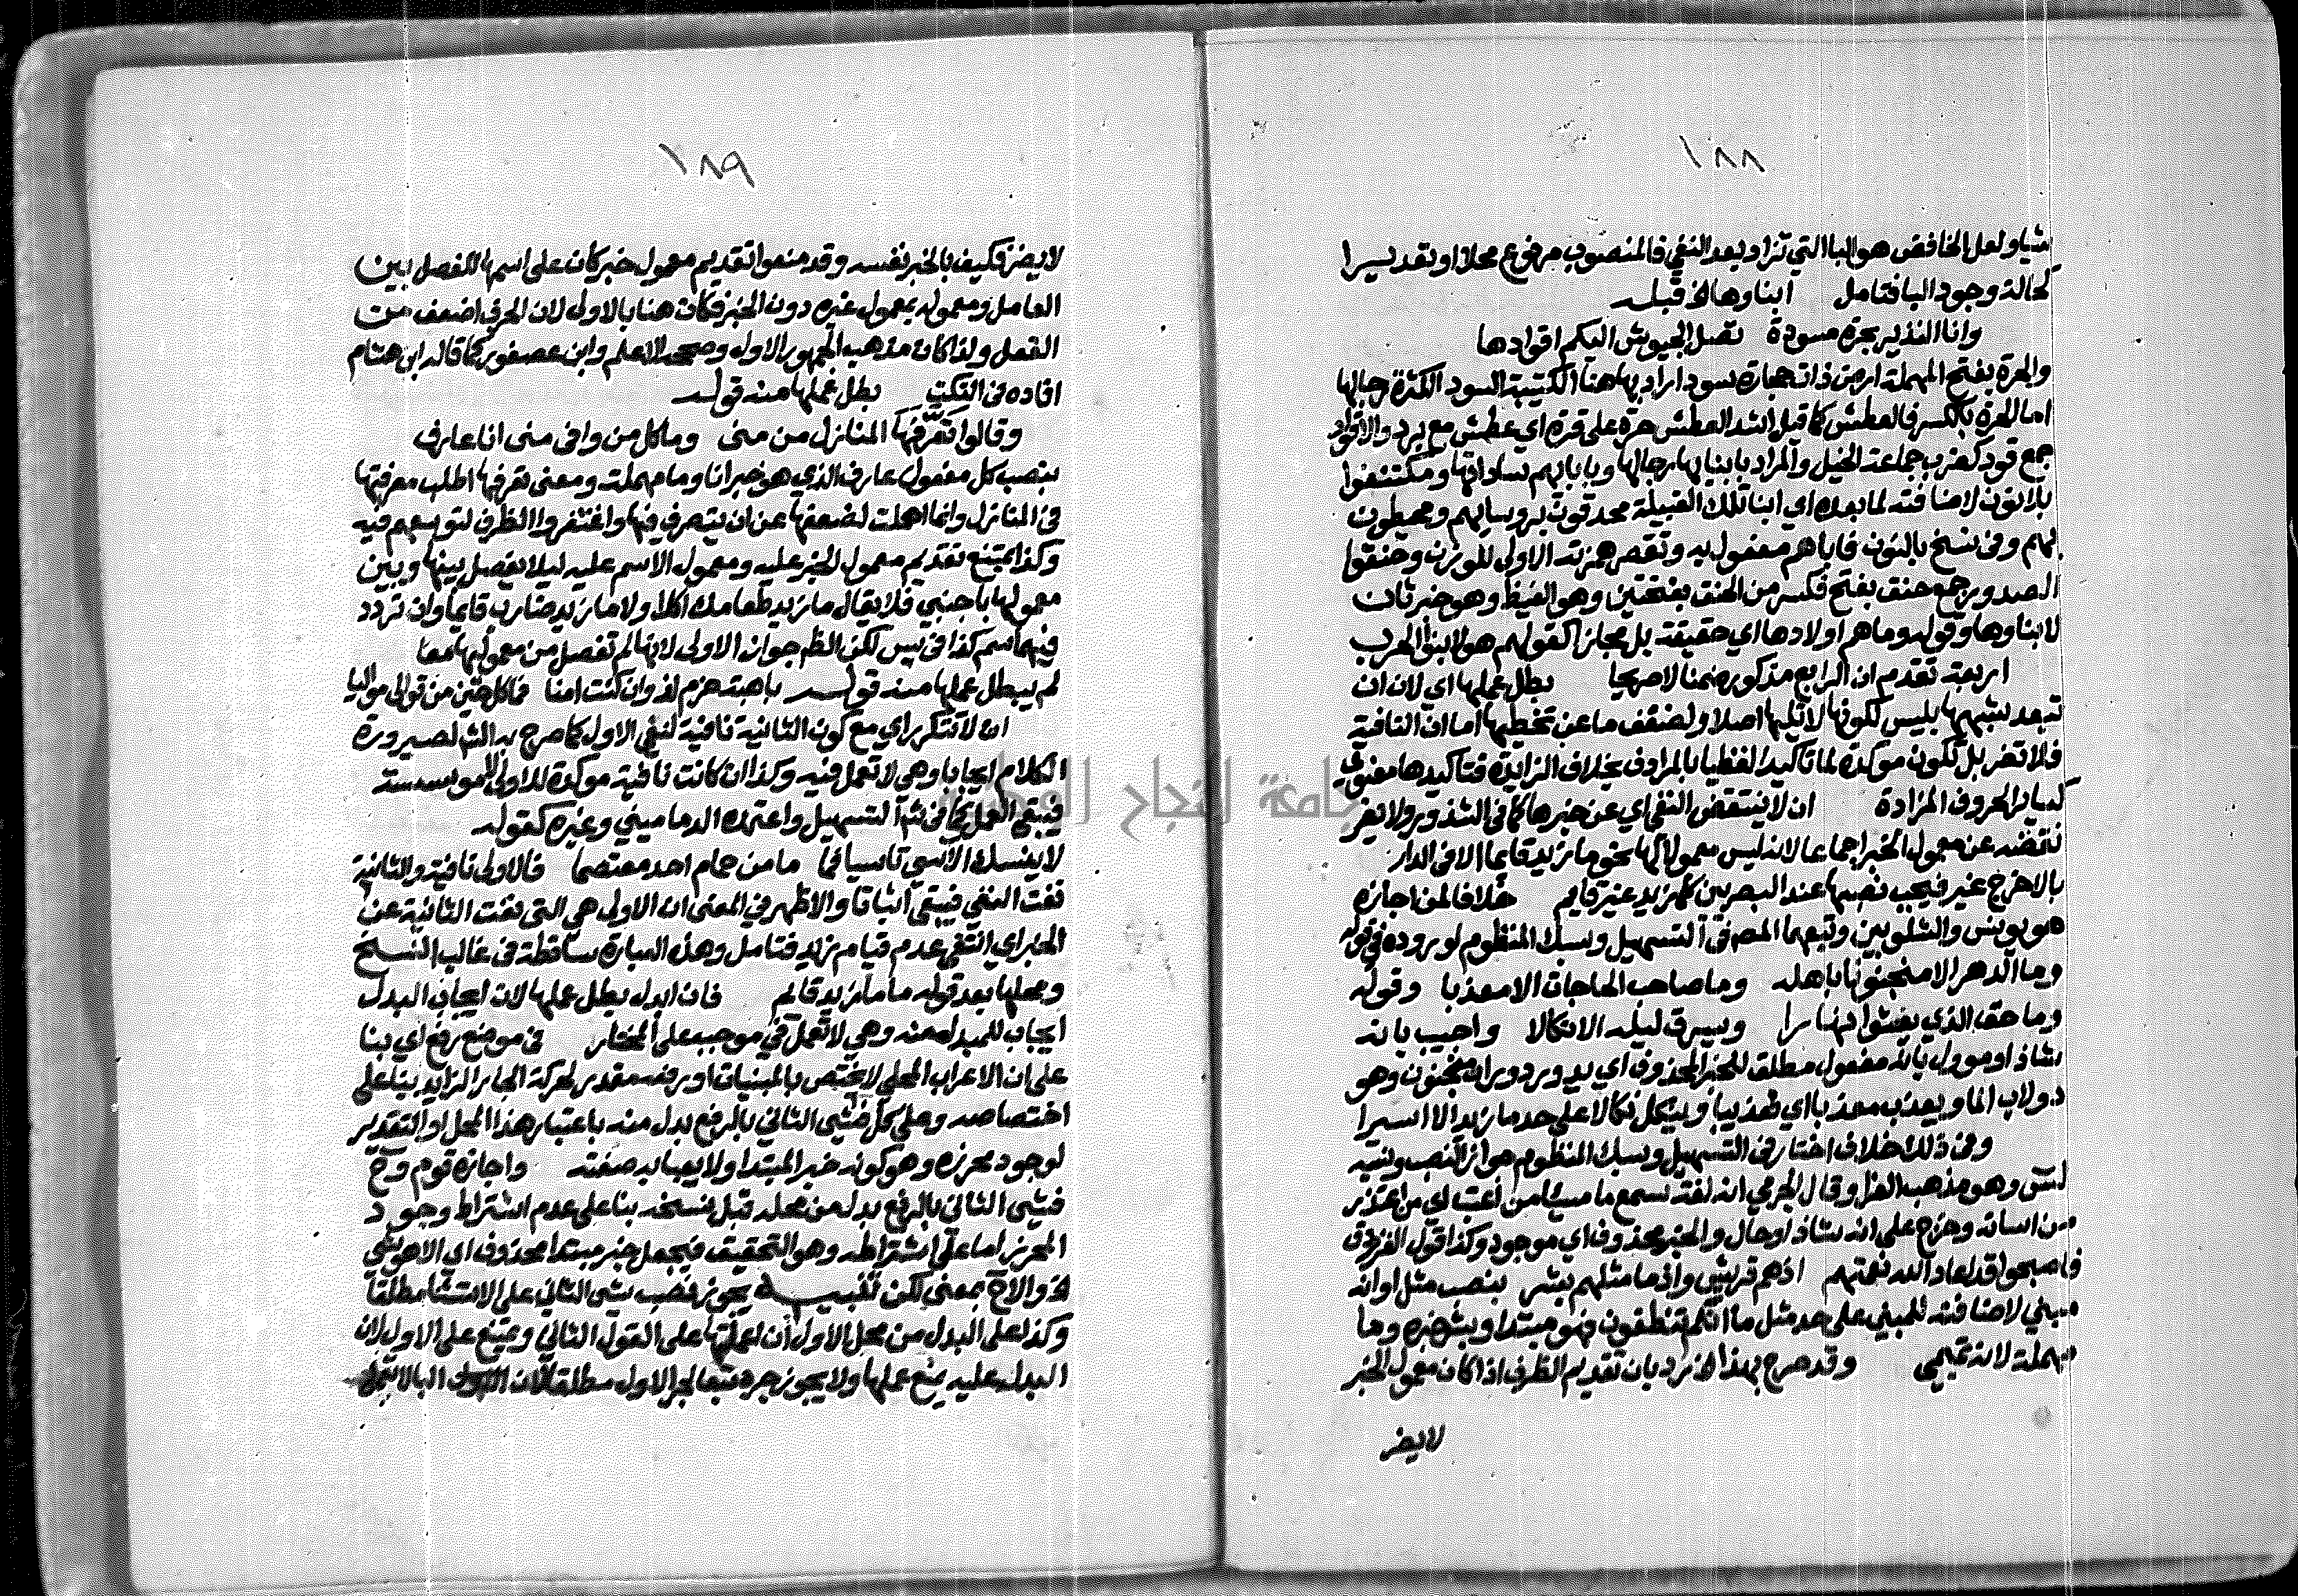 ١٨٨
شيا ولعل الخافض هو البا التي تزاد بعد النفي فالمنصوب مرفوع محلا او تقديرا
كحالة وجود البا فتامل ابناوها الخ قبله
وانا النذير بحرة مسودة تصل الجيوش اليكم اقوادها
والحرة بفتح المهملة ارض ذات حجارة سود اراد بها هنا الكتيبة السود الكثرة رجالها
اما الحرة بالكسر فالعطش كما قيل اشد العطش حرة على قرة اي عطش مع برد والاقواد
جمع قود كضرب جماعة الخيل والمراد بابنايها رجالها وبابايهم ساداتها ومكتنفوا
بلا نون لاضافته لما بعده اي ابنا تلك القبيلة محدقون بروسايهم ومحيطون
بهم وفي نسخ بالنون فاباهم مفعول به وتقصر همزته الاولى للوزن وحنقوا
الصدور جمع حنق بفتح فكسر من الحنق بفتحتين وهو الغيظ وهو خبر ثان
لابناوها وقوله وما هم اولادها اي حقيقة بل مجازا كقولهم هولا بنوا الحرب
اربعة تقدم ان الرابع مذكور ضمنا لا صريحا بطل عملها اي لان ان
تبعد شبهها بليس لكونها لا تليها اصلا ولضعف ما عن تخطيها اما ان النافية
فلا تضر بل تكون موكدة لما تاكيدا لفظيا بالمرادف بخلاف الزايدة فتاكيدها معنوي
كساير الحروف المزادة ان لا ينتقض النفي اي عن خبرها كما في الشذور ولا يضر
نقضه عن معمول الخبر اجماعا لانه ليس معمولا لها نحو ما زيد قايما الا في الدار
بالاخرج غير فيجب نصبها عند البصريين كما زيد غير قايم خلافا لمن اجازه
هو يونس والشلوبين وتبعهما المصر في التسهيل وسبك المنظوم لوروده في قوله
وما الدهر الا منجنونا باهله وما صاحب الحاجات الا معذبا وقوله
وما حق الذي يعثوا نهارا ويسرق ليله الا نكالا واجيب بانه
شاذ او موول بانه مفعول مطلق للخبر المحذوف اي يدور دوران منجنون وهو
دولاب الما ويعذب معذبا اي تعذيبا وينكل نكالا على حد ما زيد الا سيرا
وفي ذلك خلاف اختار في التسهيل وسبك المنظوم جواز النصب ونسبه
لس وهو مذهب الفرا وقال الجرمي انه لغة سمع ما مسيئا من اعتب اي من اعتذر
من اساته وخرج على انه شاذ او حال والخبر محذوف اي موجود وكذا قول الفرزدق
فاصبحوا قد اعاد الله نعمتهم اذ هم قريش واذ ما مثلهم بشر بنصب مثل او انه
مبني لاضافته للمبني على حد مثل ما انكم تنطقون فهو مبتدا وبشر خبره وما
مهملة لانه تميمي وقد صرح بهذا الخ رد بان تقديم الظرف اذا كان معمول الخبر
لا يضر
١٨٩
لا يضر فكيف بالخبر نفسه وقد منعوا تقديم معمول خبر كان على اسمها للفصل بين
العامل ومعموله بمعمول غيره دون الخبر فكان هنا بالاولى لان الحرف اضعف من
الفعل ولذا كان مذهب الجمهور الاول وصححه الاعلم وابن عصفور كما قاله ابن هشام
افاده في النكت بطل عملها منه قوله
وقالوا تعرفها المنازل من منى وما كل من وافى منى انا عارف
بنصب كل مفعول عارف الذي هو خبر انا وما مهملة ومعنى تعرفها اطلب معرفتها
في المنازل وانما اهملت لضعفها عن ان يتصرف فيها واغتفروا الظرف لتوسعهم فيه
وكذا يمتنع تقديم معمول الخبر عليه ومعمول الاسم عليه ليلا يفصل بينها وبين
معمولها باجنبي فلا يقال ما زيد طعامك اكلا ولا ما زيد ضارب قايما وان تردد
فيهما سم كذا في يس لكن الظ جواز الاولى لانها لم تفصل من معموليها معا
لم يبطل عملها منه قوله باهبة حزم لذ وان كنت امنا فما كل حين من توالي مواليا
ان لا تتكرر اي مع كون الثانية نافية لنفي الاول كما صرح به الش لصيرورة
الكلام ايجابا وهي لا تعمل فيه وكذا ان كانت نافية موكدة للاولى لا موسسة
فيبقى العمل كما في ش التسهيل واعتمده الدماميني وغيره كقوله
لا ينسك الاسى تاسيا فما ما من حمام احد معتصما فالاولى نافية والثانية
نفت النفي فيبقى اثباتا والاظهر في المعنى ان الاولى هي التي نفت الثانية عن
الخبر اي انتفى عدم قيام زيد فتامل وهذه العبارة ساقطة في غالب النسخ
ومحلها بعد قوله ما ما زيد قايم فان ابدل بطل عملها لان ايجاب البدل
ايجاب للمبدل منه وهي لا تعمل في موجبه على المختار في موضع رفع اي بنا
على ان الاعراب المحلي لا يختص بالمبنيات او رفعه مقدر لحركة الجار الزايد بنا على
اختصاصه وعلى كل فشي الثاني بالرفع بدل منه باعتبار هذا المحل او التقدير
لوجود محرزه وهو كونه خبر المبتدا ولا يعبا به صفته واجازه قوم وح
فشي الثاني بالرفع بدل من محله قبل نسخه بنا على عدم اشتراط وجود
المحرز اما على اشتراطه وهو التحقيق فيجعل خبر مبتدا محذوف اي الا هو شي
الخ والا ح بمعنى لكن تنبيه يجوز نصب شي الثاني على الاستثنا مطلقا
وكذا على البدل من محل الاول ان اعملتها على القول الثاني ويمتنع على الاول لان
البدل عليه يمنع عملها ولا يجوز جره تبعا لجر الاول مطلقا لان البا لا تعمل
جامعة النجاح الوطنية